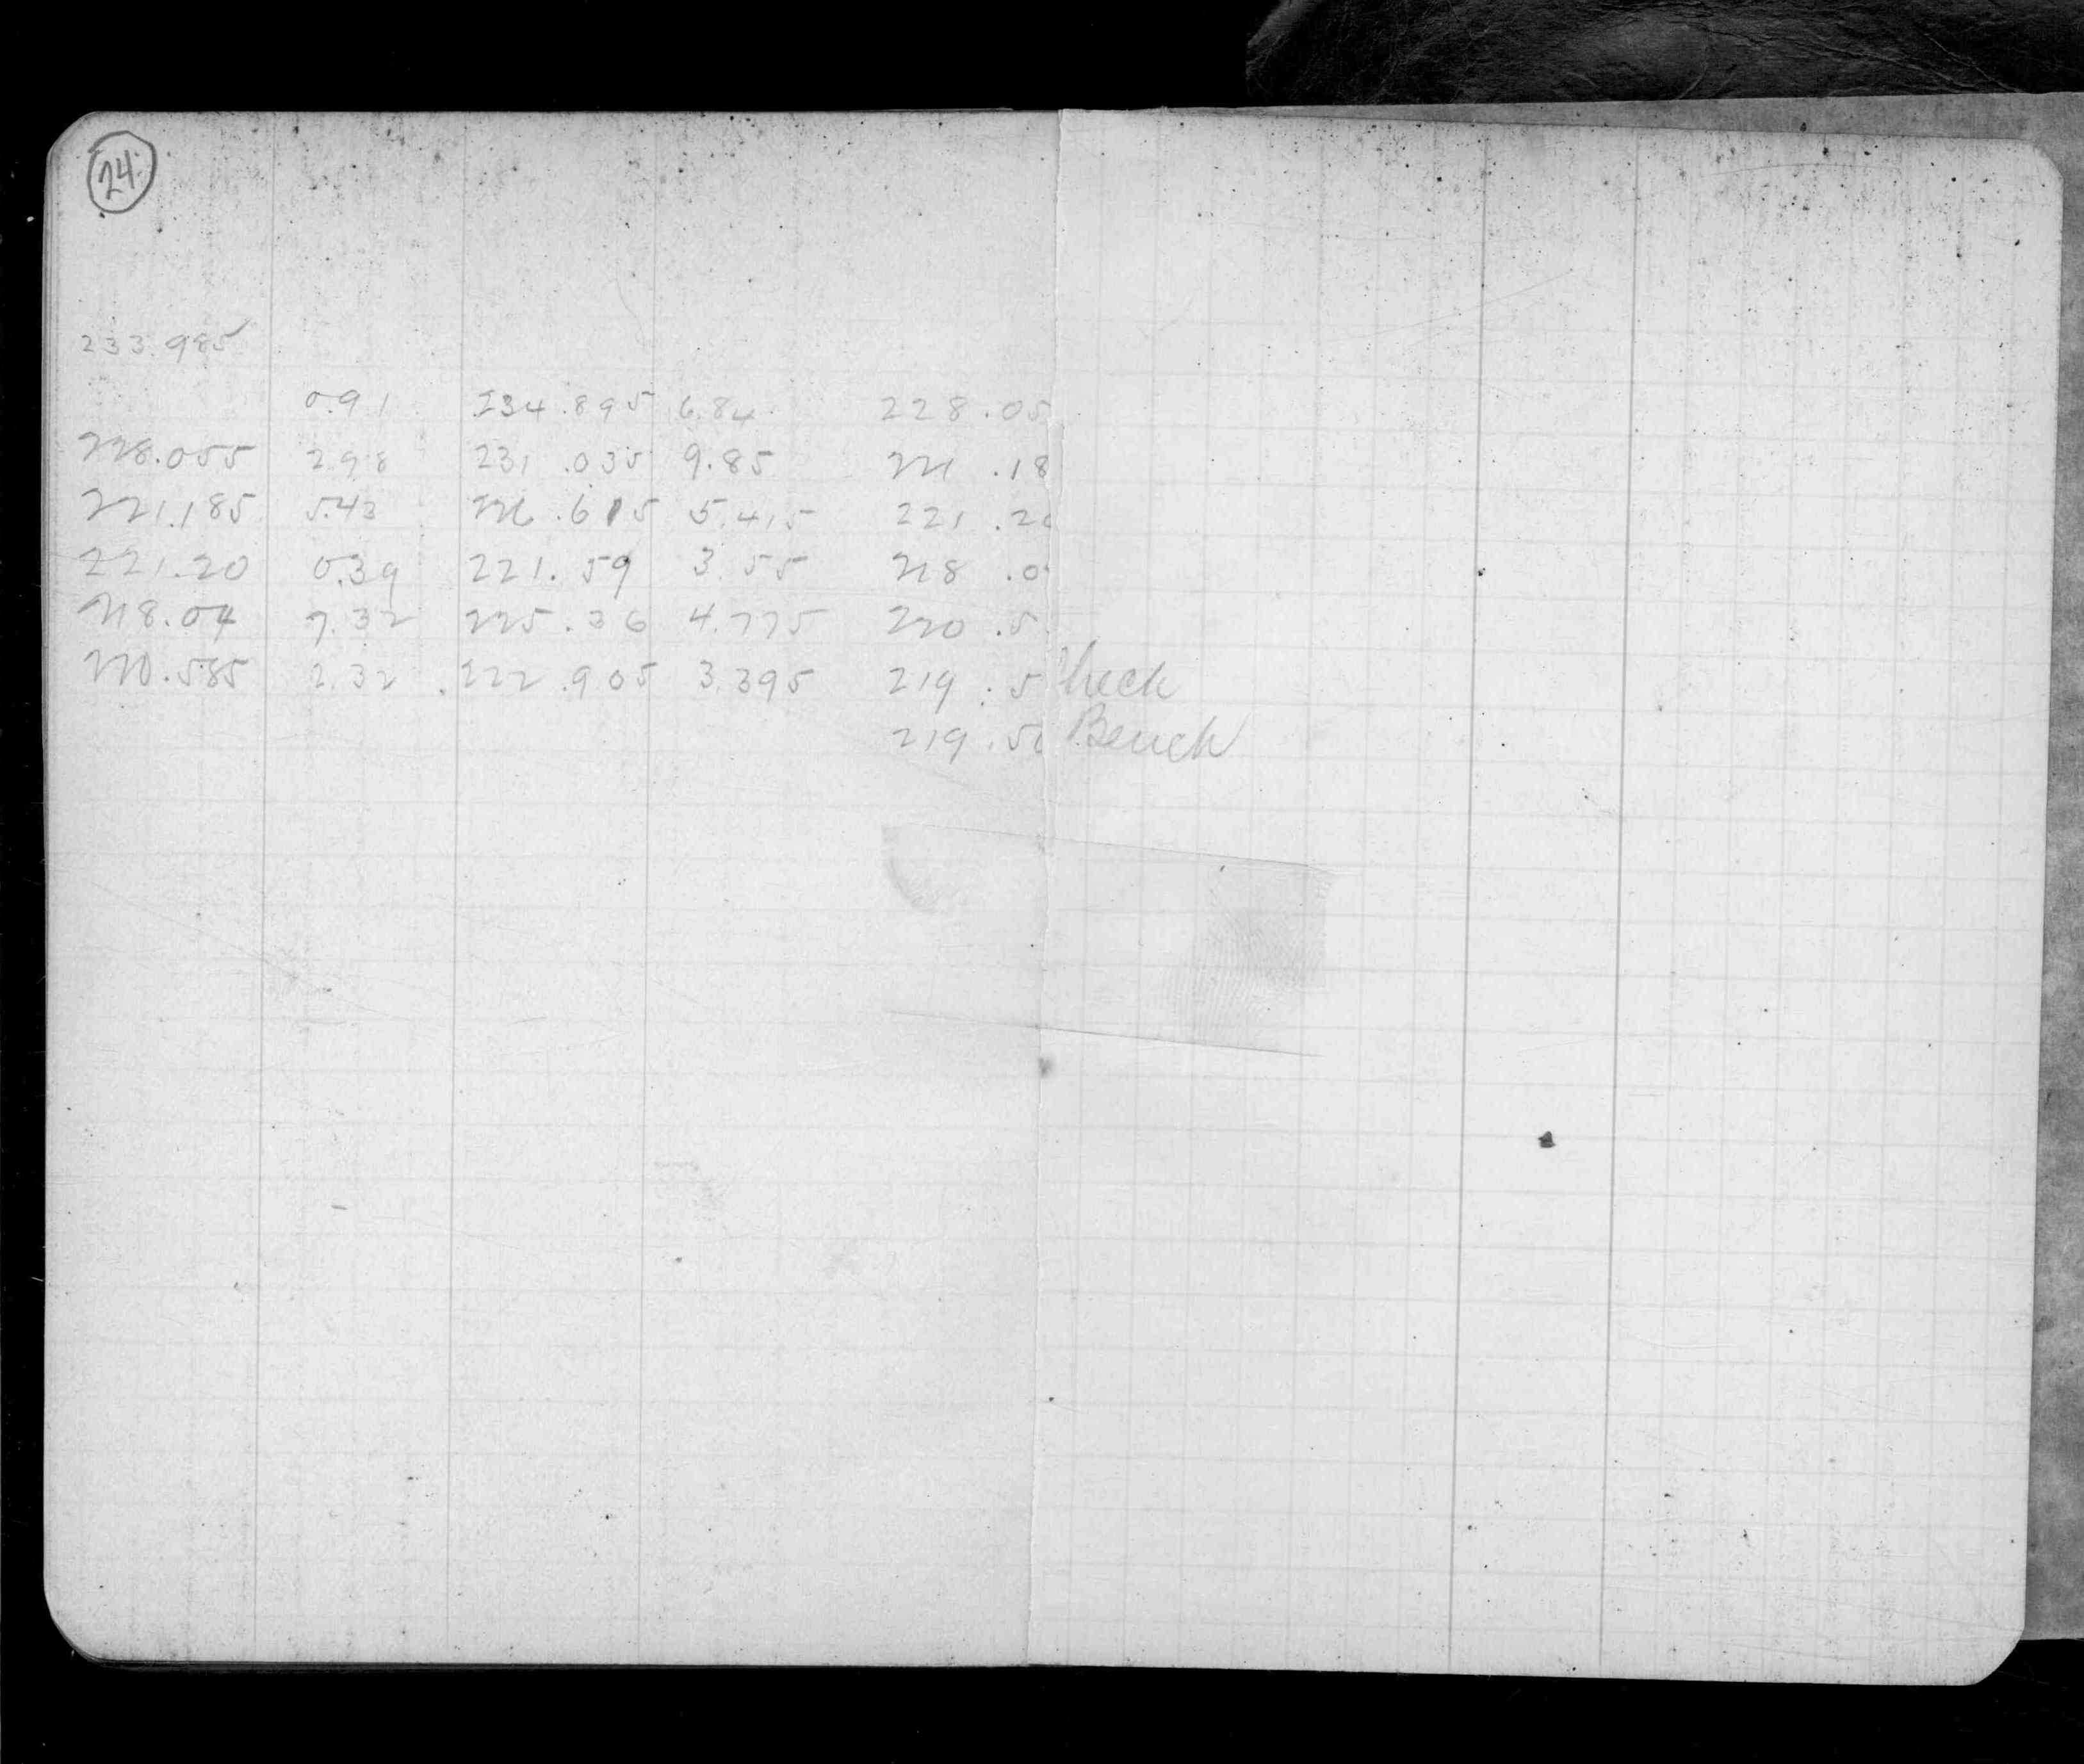 24.
233.985
0.91 234.895 6.84 228.05
228.055 2.98 231.035 9.85 221.18
221.185 5.43 226.615 5.415 221.20
221.20 0.39 221.59 3.55 218.0
218.04 7.32 225.36 4.775 220.5
220.585 2.32 222.905 3.395 219.5 Check
219.50 Bench